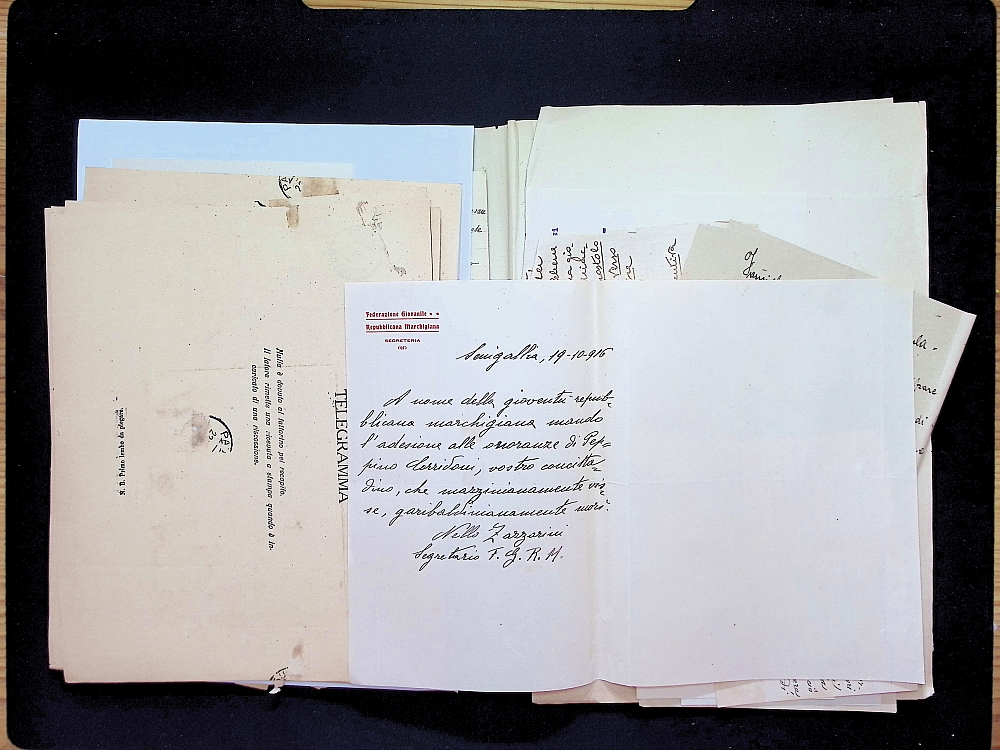 Federazione Giovanile
Repubblicana Marchigiana
SEGRETERIA
Senigallia, 19-10-916
A nome della gioventù repub-
blicana marchigiana mando
l'adesione alle onoranze di Pep=
pino Corridoni, vostro concitta=
dino, che mazzinianamente vis=
se, garibaldinianamente morì.
Nello Zazzarini
Segretario F. G. R. M.
TELEGRAMMA
Nulla è dovuto al fattorino pel recapito.
Il latore rimette una ricevuta a stampa quando è in-
caricato di una riscossione.
N. B. Primo lembo da piegare.